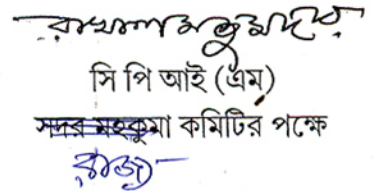 রাখাল মজুমদার
সি পি আই (এম)
সদর মহকুমা কমিটির পক্ষে
রাজ্য